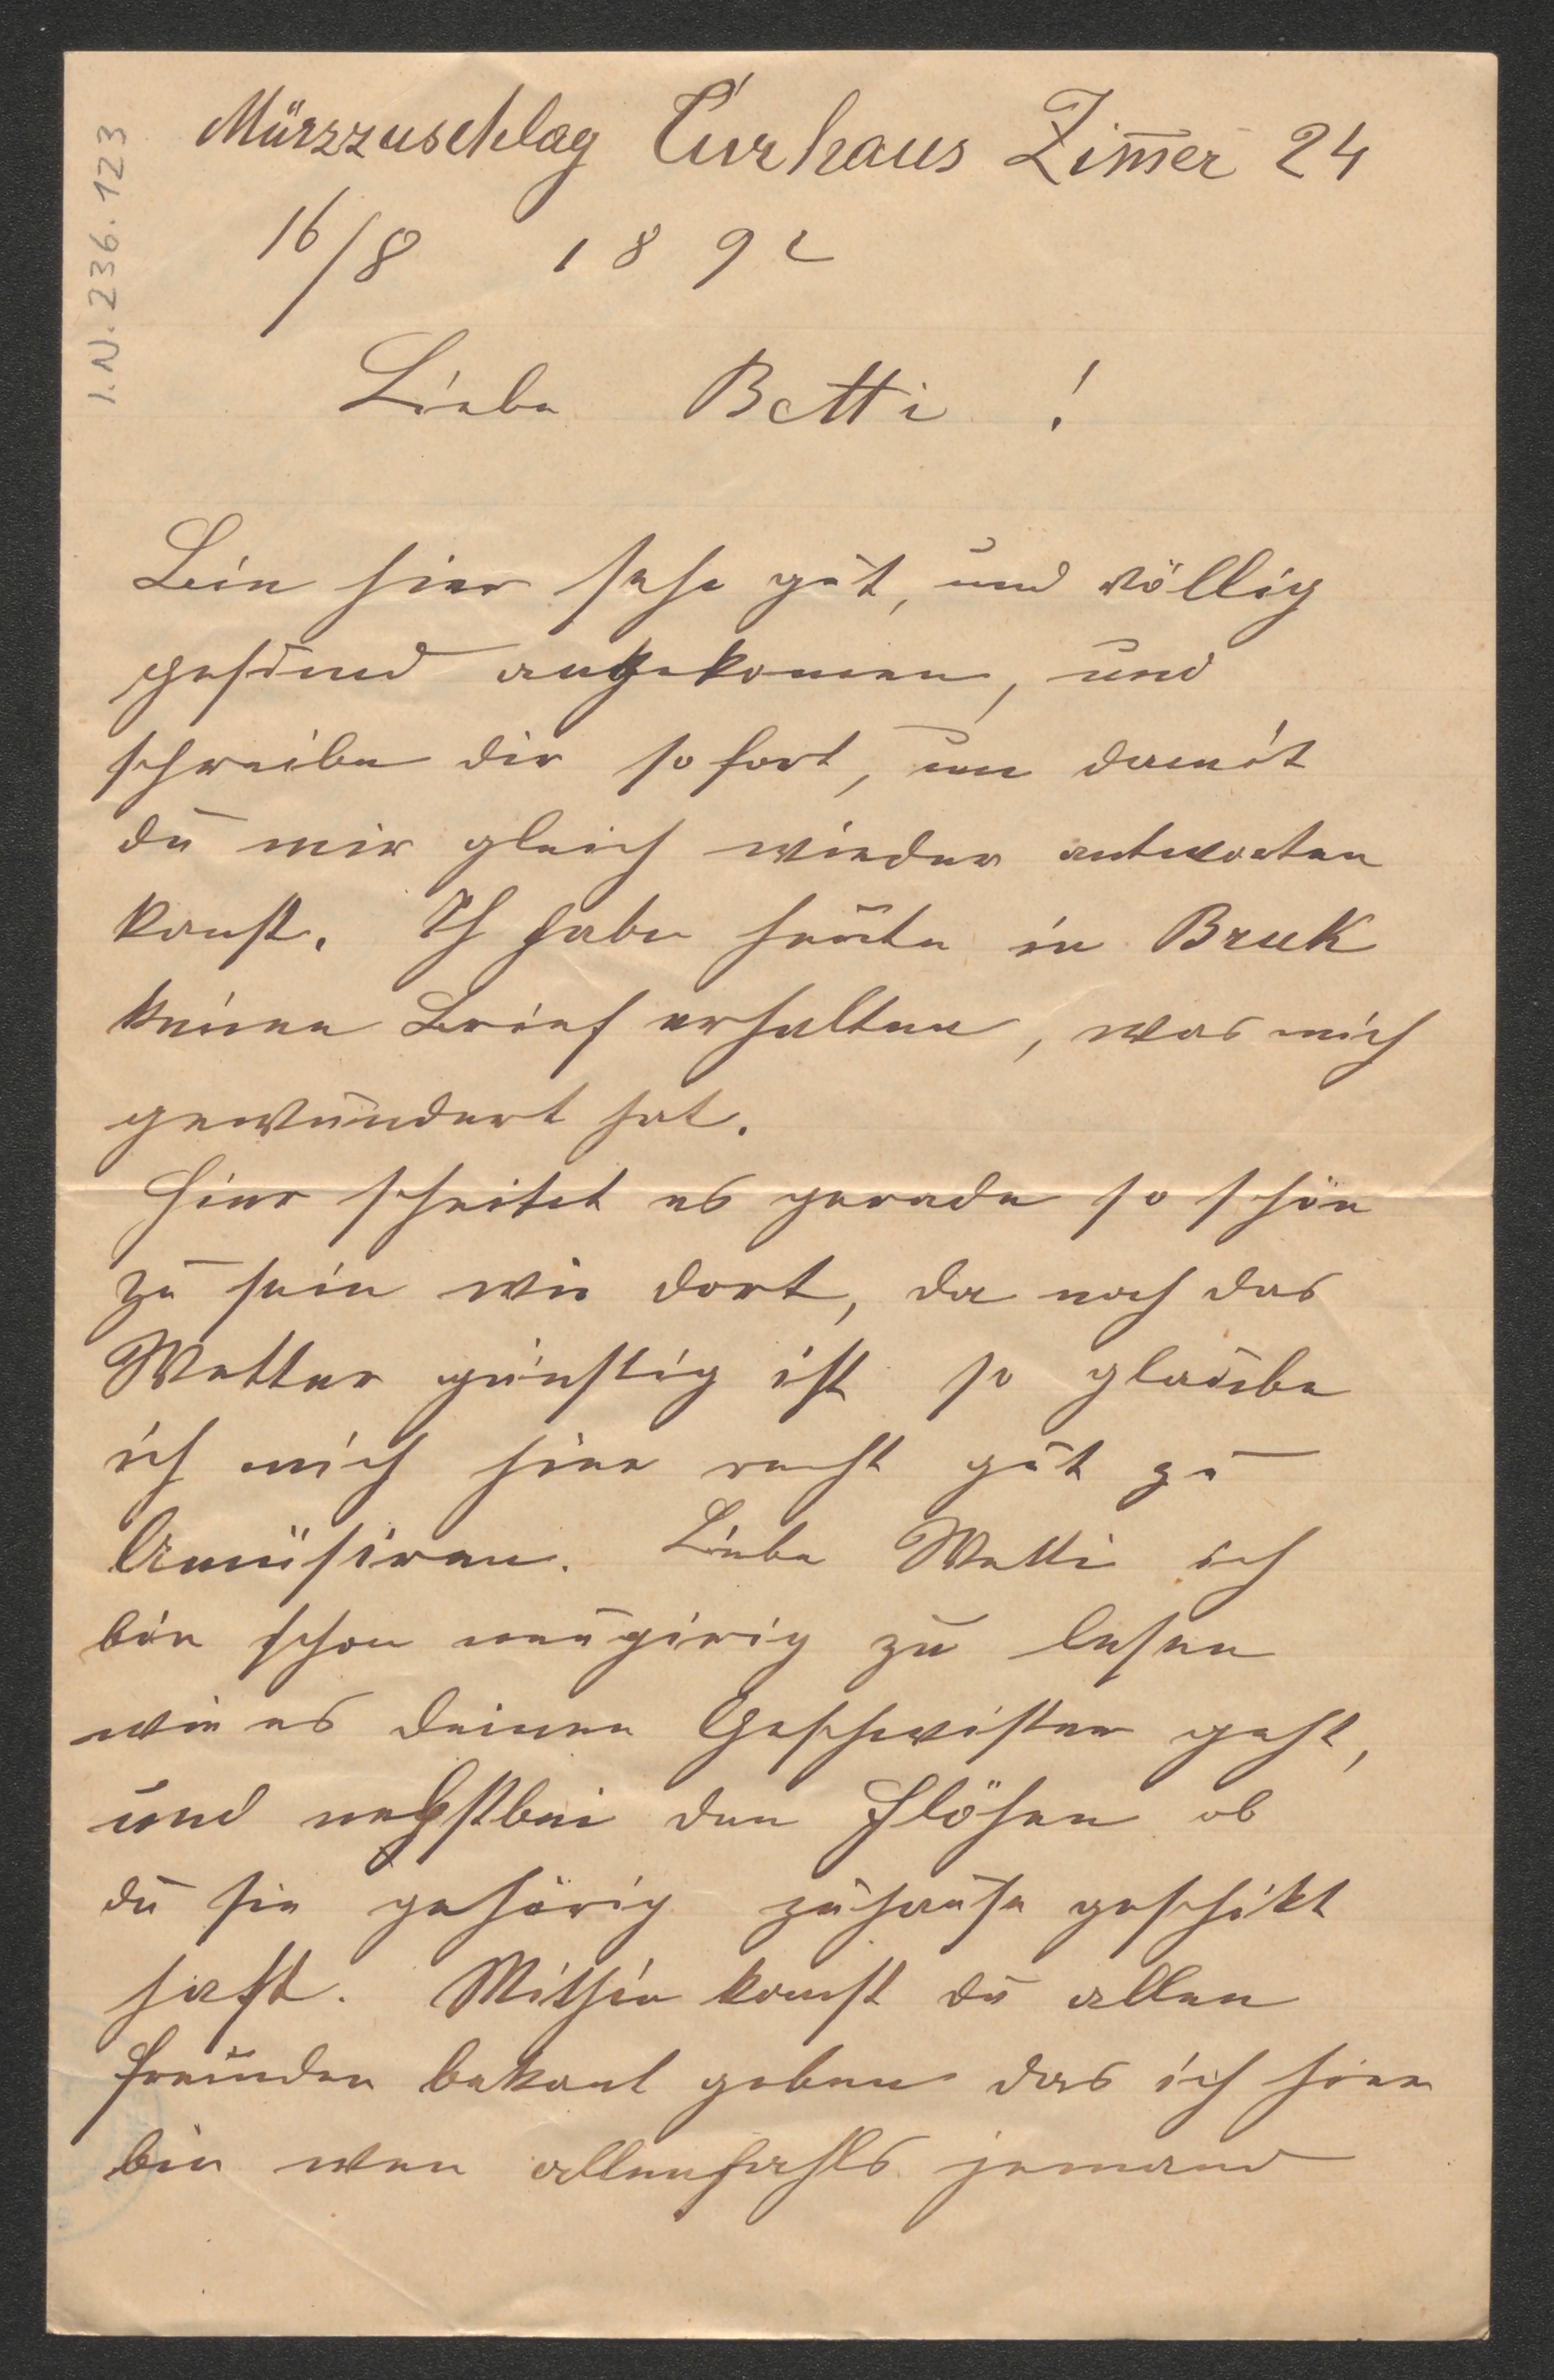 I.N. 236.123
Mürzzuschlag Curhaus Zim̅er 24
16/8 1892
Liebe Betti !
Bin hier sehr gut, und völlig
gesund angekomen, und
schreibe dir sofort, um damit
du mir gleich wieder antworten
kanst. Ich habe heute in Bruk
keinen Brief erhalten, was mich
gewundert hat.
Hier scheitet es gerade so schön
zu sein wie dort, da noch das
Wetter günstig ist so glaube
ich mich hier recht gut zu
Amüsiren. Liebe Wetti ich
bin schon neugirig zu lesen
wie es deinen Geschwister geht,
und nebstbei den Flöhen ob
du sie gehörig zuhause geschikt
hast. Mithin kanst du allen
Freunden bekant geben das ich hier
bin wen allenfahls jemand